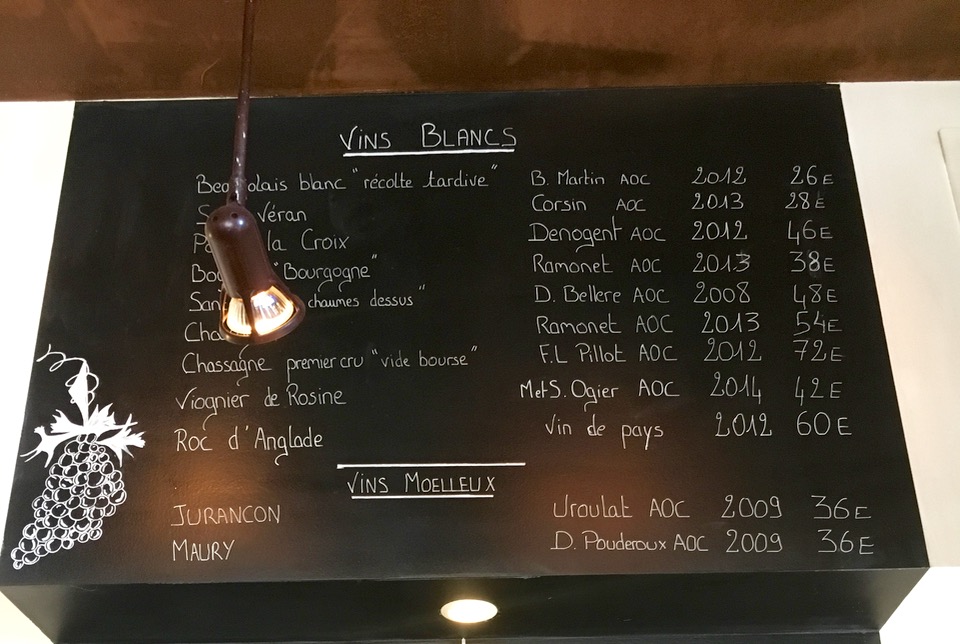 Vins Blancs
blanc "récolte tardive" B. Martin AOC 2012 26E
Véran Corsin AOC 2013 28E
la Croix Denogent AOC 2012 46E
"Bourgogne" Ramonet AOC 2013 38E
chaumes dessus" D. Bellere AOC 2008 48E
Ramonet AOC 2013 54E
Chassagne premier cru "vide bourse" F.L Pillot AOC 2012 72E
Viognier de Rosine MetS. Ogier AOC 2014 42E
Roc d'Anglade Vin de pays 2012 60E
Vins Moelleux
JURANCON Uroulat AOC 2009 36E
MAURY D. Pouderoux AOC 2009 36E